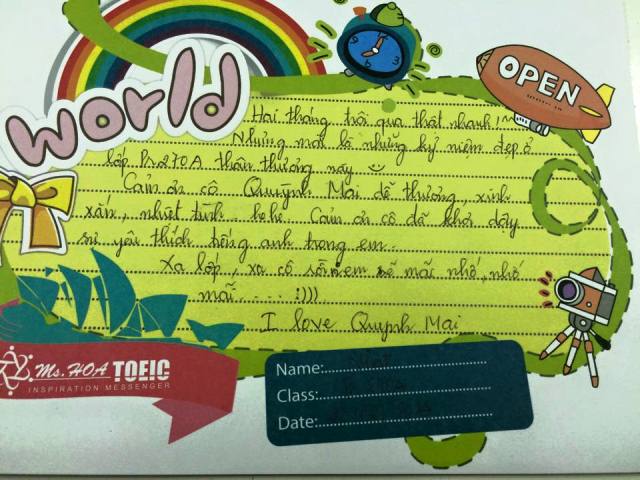 World
OPEN
Hai tháng trôi qua thật nhanh !
Nhưng mãi là những kỷ niệm đẹp ở
lớp Pre270A thân thương này
Cảm ơn cô Quỳnh Mai dễ thương, xinh
xắn, nhiệt tình.. hehe. Cảm ơn cô đã khơi dậy
sự yêu thích tiếng anh trong em..
Xa lớp, xa cô rồi em sẽ mãi nhớ, nhớ
mãi..... :)))
I love Quỳnh Mai
Ms.HOA TOEIC
INSPIRATION MESSENGER
Name:
Class:
Date: